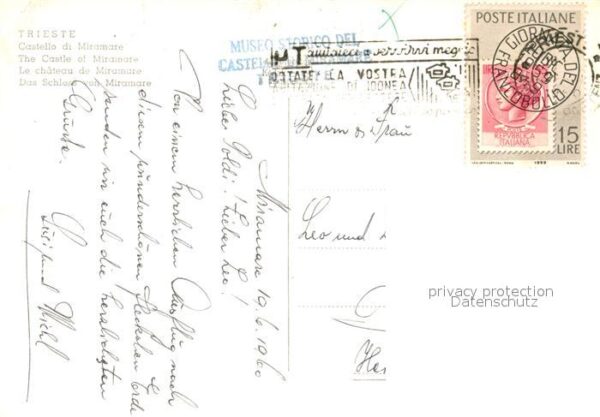 TRIESTE
Castello di Miramare
The Castle of Miramare
Le château de Miramare
Das Schloss von Miramare
MUSEO STORICO DEL
CASTELLO DI MIRAMARE
servirvi meglio
DOTATE LA VOSTRA
ABITAZIONE DI IDONEA
POSTE ITALIANE
GIORNATA DEL
FRANCOBOLLO
REPUBBLICA
ITALIANA
15
LIRE
1959
Miramare 19.6.1960
Lieber Poldi! Lieber Leo!
Von einem herrlichen Ausflug nach
diesem wunderschönen Fleckchen Erde
senden wir euch die herzlichsten
Grüsse.
und Michl
Herrn u. Frau
Leo und
privacy protection
Datenschutz